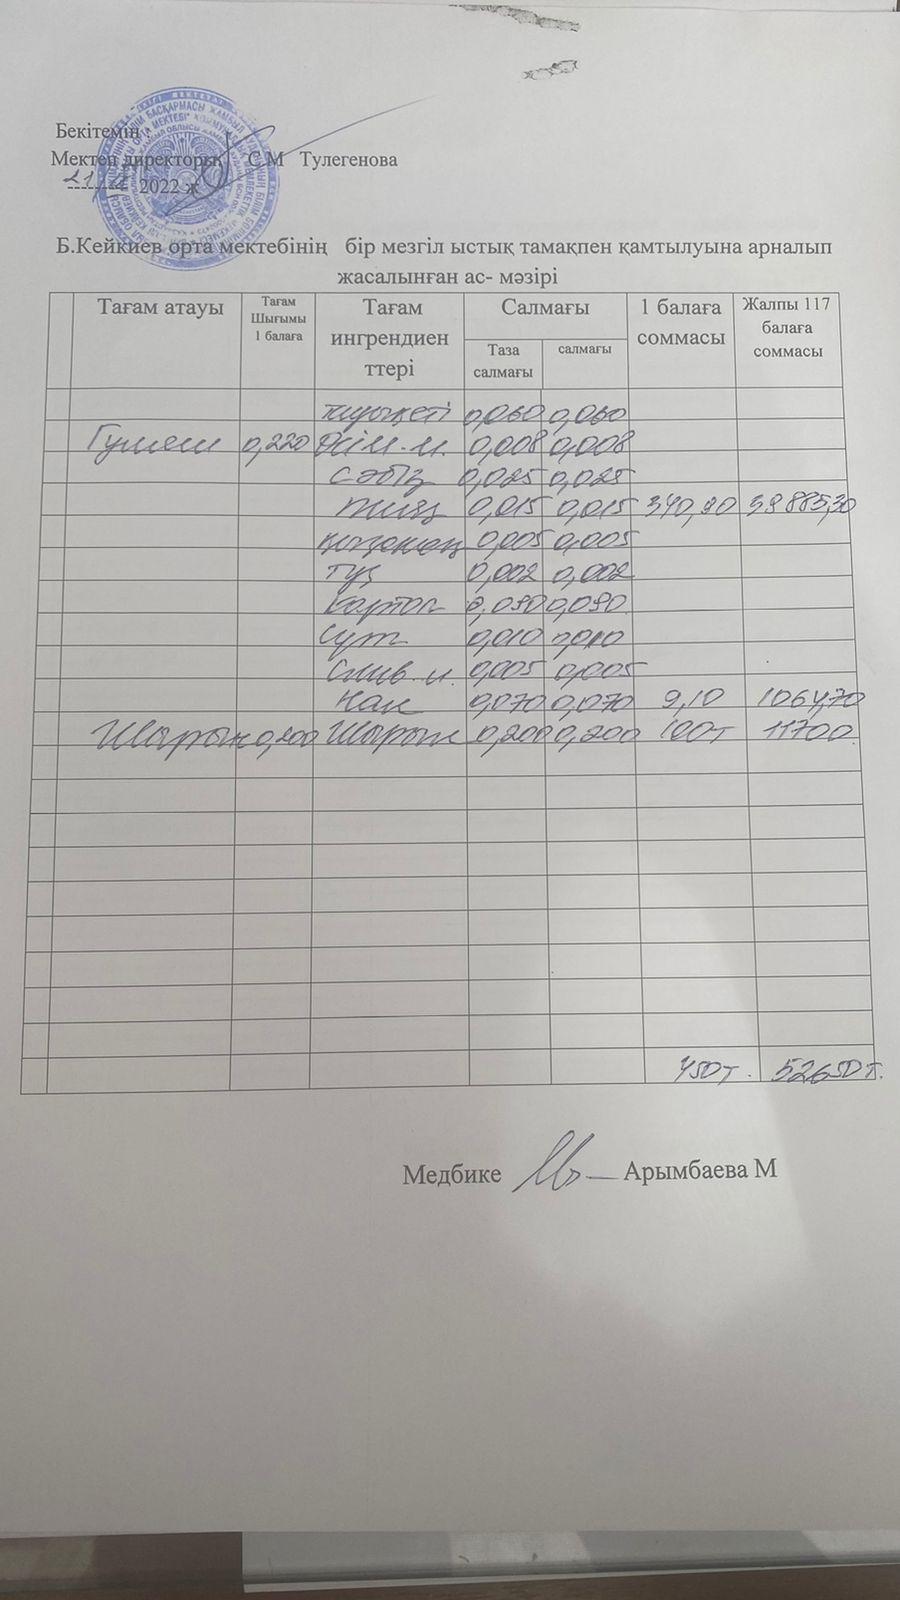 Бекітемін :
Мектеп директоры С М Тулегенова
21 2022 ж
Б.Кейкиев орта мектебінің бір мезгіл ыстық тамақпен қамтылуына арналып
жасалынған ас- мәзірі
Тағам атауы Тағам Шығымы 1 балаға Тағам ингрендиен ттері Салмағы 1 балаға соммасы Жалпы 117 балаға соммасы
Таза салмағы салмағы
0,060 0,060
Гуляш 0,220 Өсім.м. 0,008 0,008
Сәбіз 0,025 0,025
Пияз 0,015 0,015 340,90 39885,30
0,005 0,005
Тұз 0,002 0,002
Картоп 0,090 0,090
Сүт 0,010 0,010
Слив.м. 0,005 0,005
Нан 0,070 0,070 9,10 1064,70
Шырын 0,200 Шырын 0,200 0,200 100т 11700
450т. 52650т.
Медбике Арымбаева М